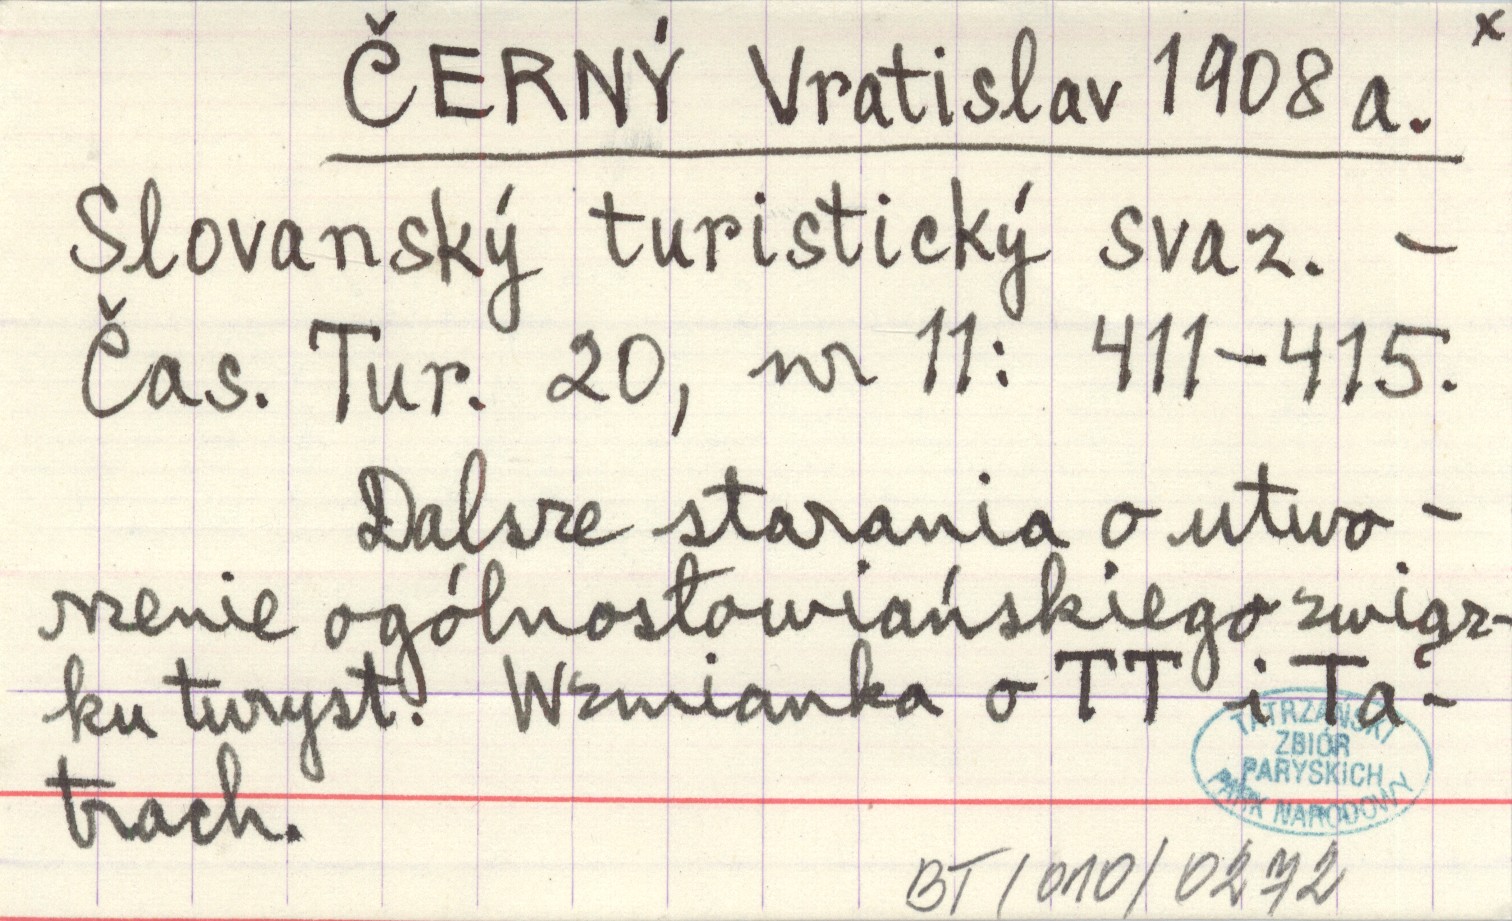 x
ČERNÝ Vratislav 1908 a.
Slovanský turistický svaz. -
Čas. Tur. 20, nr 11: 411-415.
Dalsze starania o utwo-
rzenie ogólnosłowiańskiego związ-
ku turyst. Wzmianka o TT i Ta-
trach.
TATRZAŃSKI
ZBIÓR
PARYSKICH
PARK NARODOWY
BT/010/0272